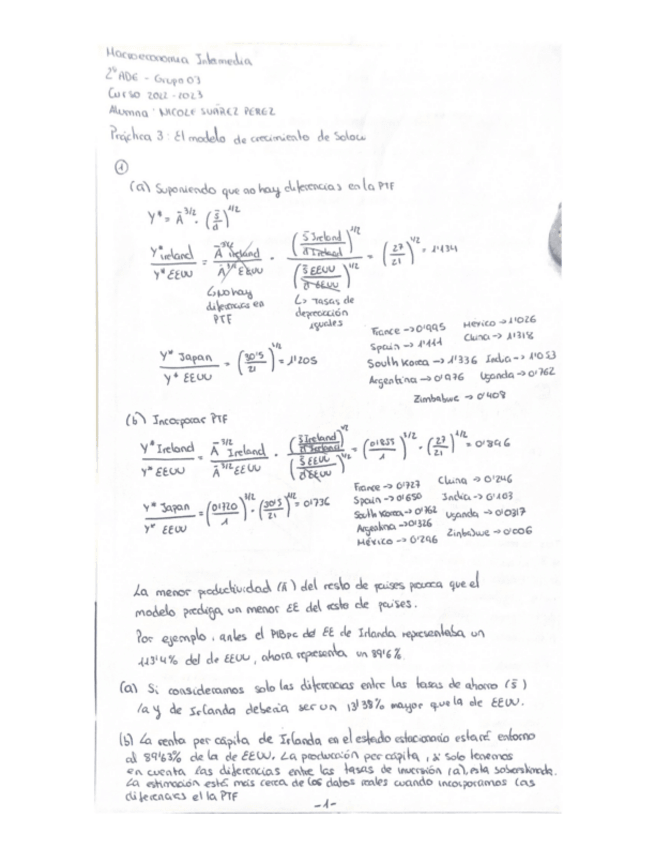 Macroeconomía Intermedia
2º ADE - Grupo 03
Curso 2022-2023
Alumna: NICOLE SUÁREZ PÉREZ
Práctica 3: El modelo de crecimiento de Solow
1
(a) Suponiendo que no hay diferencias en la PTF
Y* = Ā^3/2 · (s̄/d̄)^1/2
Y* Ireland / Y* EEUU = Ā^3/2 Ireland / Ā^3/2 EEUU · (s̄ Ireland / d̄ Ireland)^1/2 / (s̄ EEUU / d̄ EEUU)^1/2 = (27/21)^1/2 = 1'134
↳ No hay diferencias en PTF
↳ tasas de depreciación iguales
Y* Japan / Y* EEUU = (30'5/21)^1/2 = 1'205
France → 0'995 México → 1'026
Spain → 1'111 China → 1'318
South Korea → 1'336 India → 1'053
Argentina → 0'976 Uganda → 0'762
Zimbabwe → 0'408
(b) Incorporar PTF
Y* Ireland / Y* EEUU = Ā^3/2 Ireland / Ā^3/2 EEUU · (s̄ Ireland / d̄ Ireland)^1/2 / (s̄ EEUU / d̄ EEUU)^1/2 = (0'855/1)^3/2 · (27/21)^1/2 = 0'896
Y* Japan / Y* EEUU = (0'720/1)^3/2 · (30'5/21)^1/2 = 0'736
France → 0'727 China → 0'246
Spain → 0'650 India → 0'103
South Korea → 0'762 Uganda → 0'0317
Argentina → 0'326 Zimbabwe → 0'006
México → 0'296
La menor productividad (Ā) del resto de países provoca que el
modelo prediga un menor EE del resto de países.
Por ejemplo, antes el PIBpc del EE de Irlanda representaba un
113'4% del de EEUU, ahora representa un 89'6%.
(a) Si consideramos solo las diferencias entre las tasas de ahorro (s̄)
la y de Irlanda debería ser un 13'38% mayor que la de EEUU.
(b) La renta per cápita de Irlanda en el estado estacionario estaré entorno
al 89'63% de la de EEUU. La producción per cápita, si solo tenemos
en cuenta las diferencias entre las tasas de inversión (a), está sobreestimada.
La estimación está más cerca de los datos reales cuando incorporamos las
diferencias el la PTF
-1-